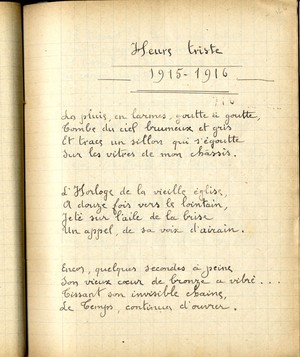 Heurs triste
1915-1916
La pluie, en larmes, goutte à goutte,
Tombe du ciel brumeux et gris
Et trace un sillon qui s'égoutte
Sur les vitres de mon châssis.
L'Horloge de la vieille église,
A douze fois vers le lointain,
Jeté sur l'aile de la brise
Un appel, de sa voix d'airain.
Encor, quelques secondes à peine
Son vieux cœur de bronze a vibré ...
Tissant son invisible chaîne,
Le Temps, continue d'ouvrer.